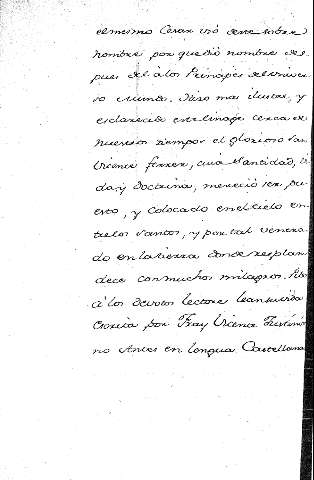 el mismo Cesar usó deste sobre
nombre por que dió nombre des
pues del á los Principes del univer
so mundo. Hizo mas ilustre, y
esclarecido este linage cerca de
nuestros tiempos el glorioso San
Vicente ferrer, cuia Santidad, vi
da, y Doctrina, mereció ser pu
esto, y colocado en el cielo en
tre los Santos, y por tal venera
do en la tierra donde resplan
dece con muchos milagros.
á los devotos lectores lean su vida
escrita por Fray Vicente Justinia
no Antist en lengua Castellana